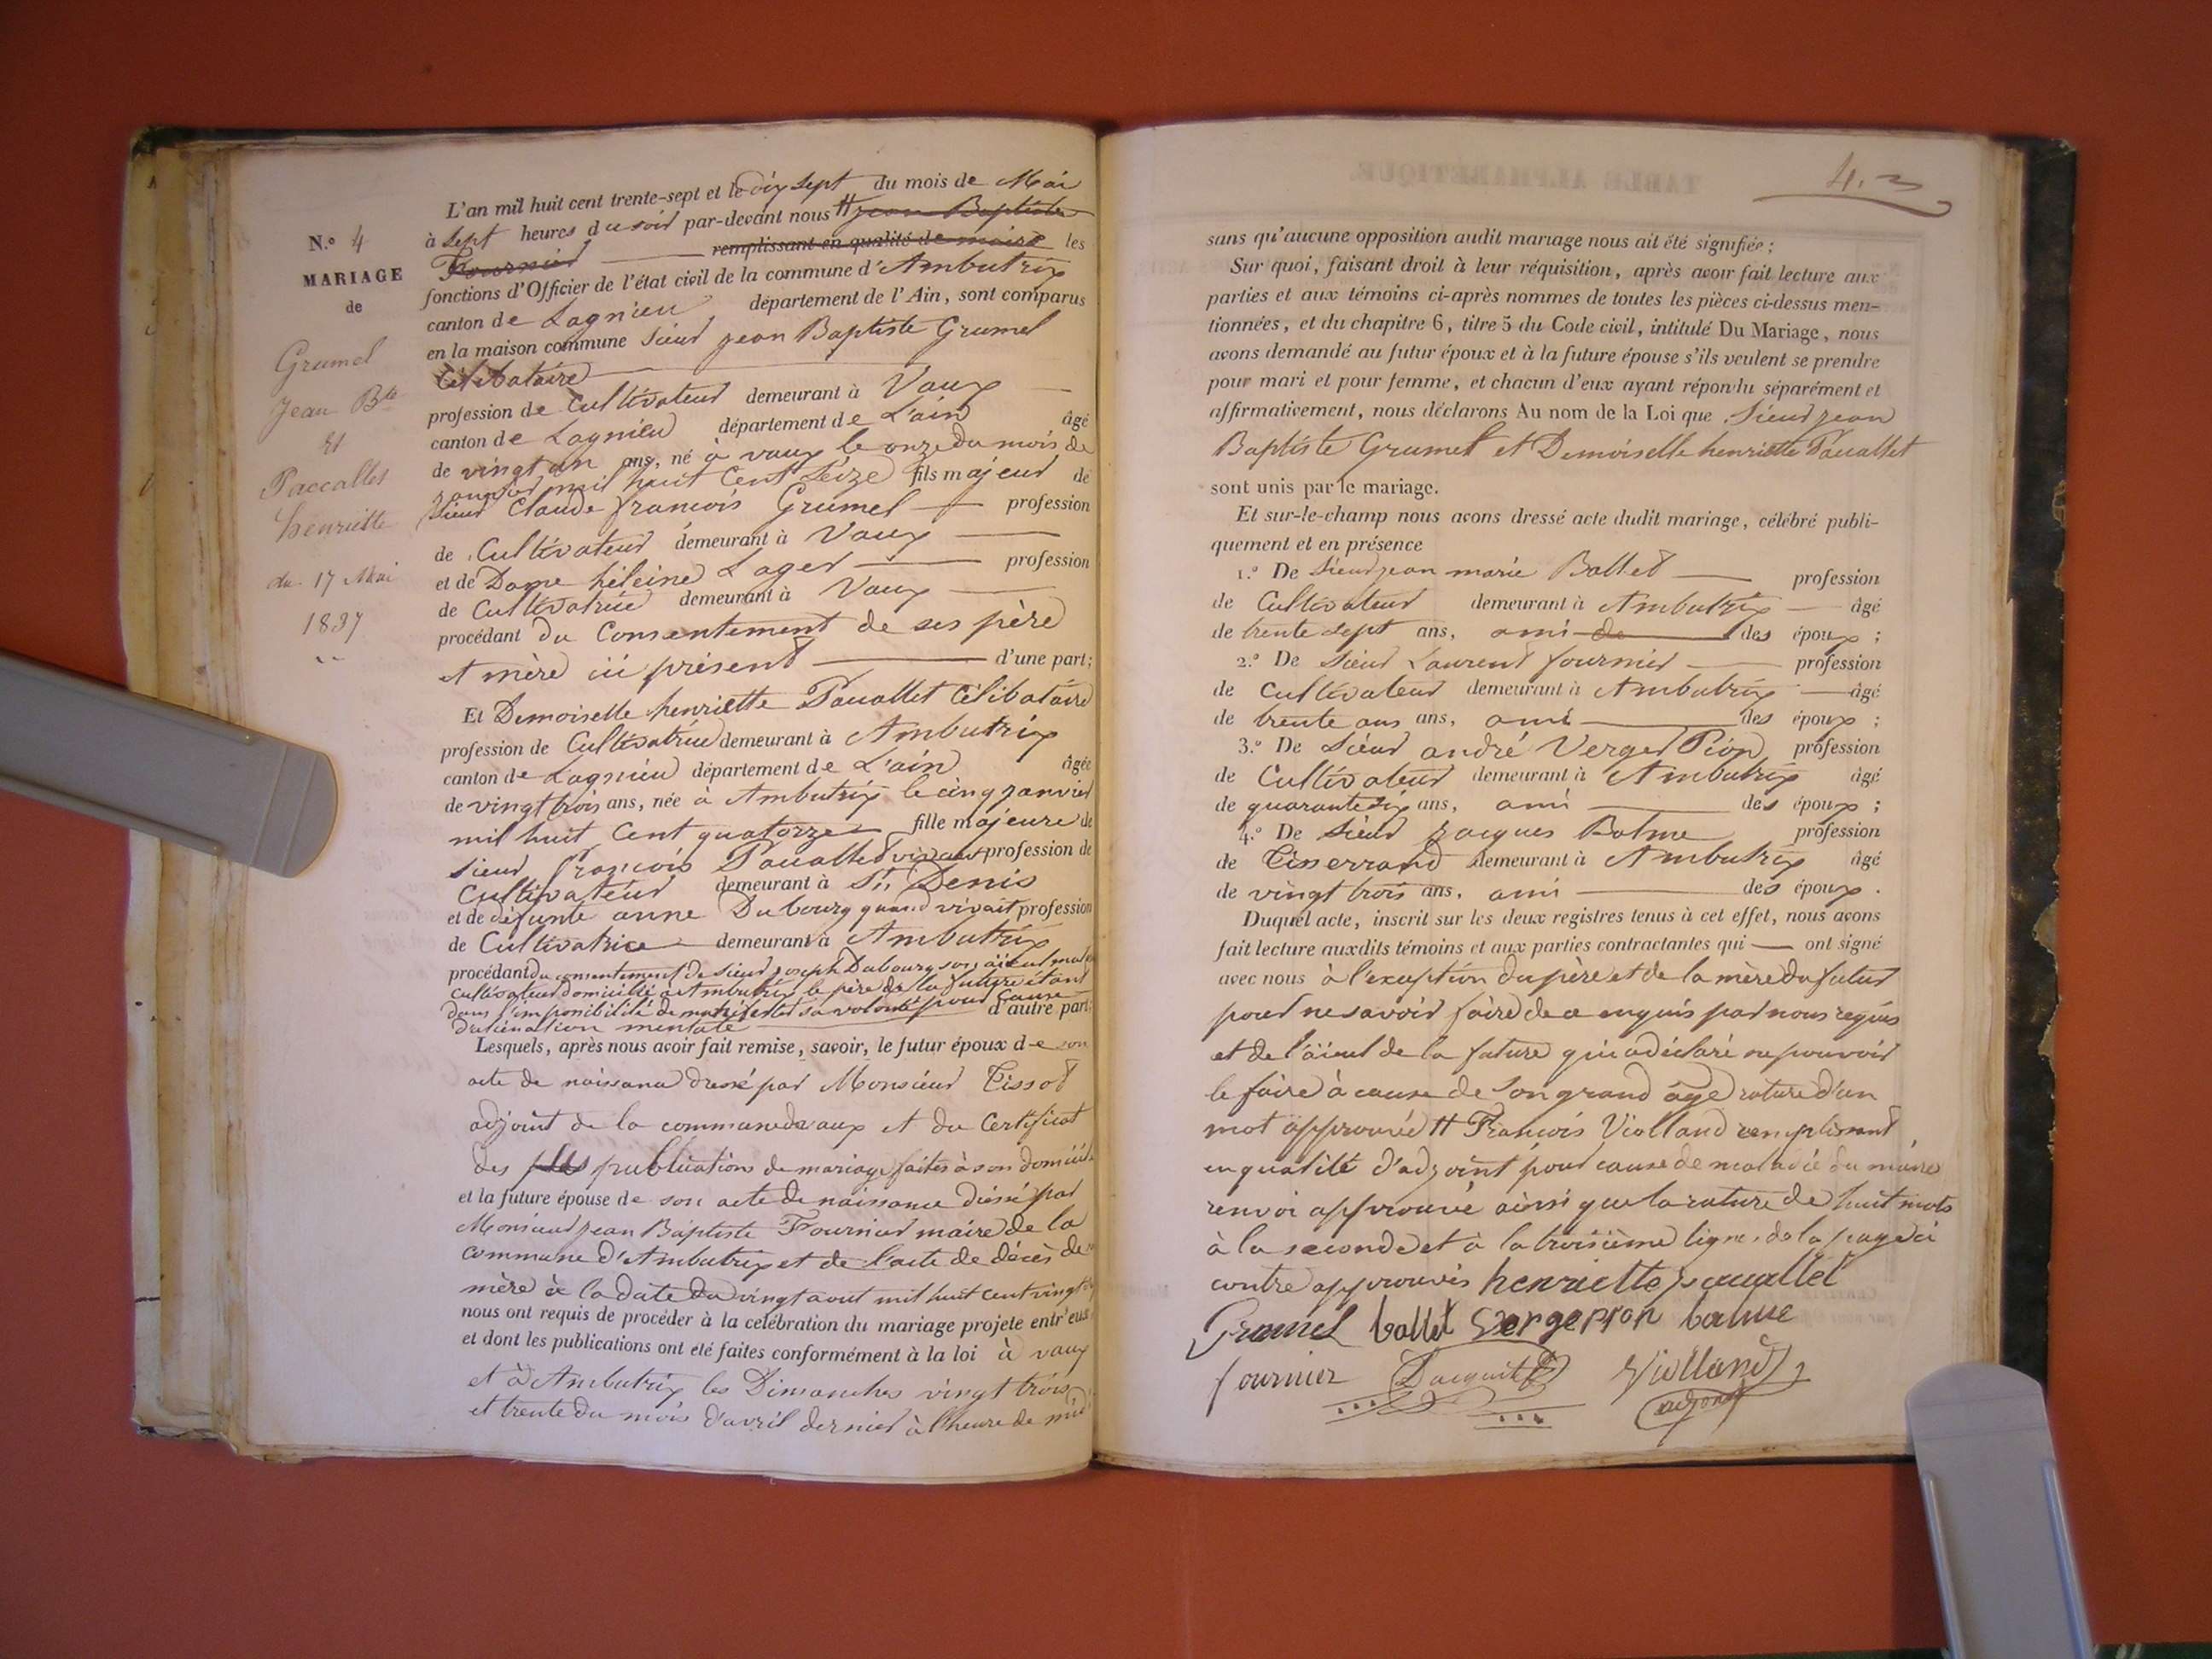 N.º 4
MARIAGE
de
Grumel
Jean Bte
Et
Paccallet
henriette
du 17 Mai
1837
L'an mil huit cent trente-sept et le dix sept du mois de Mai
à sept heures du soir par-devant nous # jean Baptiste
Fournier remplissant en qualité de maire les
fonctions d'Officier de l'état civil de la commune d'Ambutrix
canton de Lagnieu département de l'Ain, sont comparus
en la maison commune sieur jean Baptiste Grumel
Célibataire
profession de Cultivateur demeurant à Vaux
canton de Lagnieu département de L'ain âgé
de vingt un ans, né à vaux le onze du mois de
janvier mil huit Cent Seize fils majeur de
sieur Claude françois Grumel profession
de Cultivateur demeurant à Vaux
et de Dame héleine Lager profession
de Cultivatrice demeurant à Vaux
procédant du Consentement de ses père
et mère ici présent d'une part;
Et Demoiselle henriette Pacallet Célibataire
profession de Cultivatrice demeurant à Ambutrix
canton de Lagnieu département de L'ain âgée
de vingt trois ans, née à Ambutrix le cinq janvier
mil huit Cent quatorze fille majeure de
sieur françois Pacallet vivant profession de
Cultivateur demeurant à St Denis
et de défunte anne Dubourg quand vivait profession
de Cultivatrice demeurant à Ambutrix
procédant du consentement de sieur joseph Dubourg son aïeul
cultivateur domicilié à Ambutrix le père de la future étant
dans l'imposibilité de manifester sa volonté pour Cause
d'aliénation mentale d'autre part:
Lesquels, après nous avoir fait remise, savoir, le futur époux de son
acte de naissance dressé par Monsieur Tissot
adjoint de la commune de vaux et du Certificat
des publications de mariage faites à son domicile
et la future épouse de son acte de naissance dressé par
Monsieur jean Baptiste Fournier maire de la
commune d'Ambutrix et de l'acte de décès de
mère à la date du vingt aout mil huit cent vingt
nous ont requis de procéder à la celébration du mariage projete entr'eux
et dont les publications ont été faites conformément à la loi à vaux
et à Ambutrix les Dimanches vingt trois
et trente du mois d'avril dernier à l'heure de midi
sans qu'aucune opposition audit mariage nous ait été signifiée;
Sur quoi, faisant droit à leur réquisition, après avoir fait lecture aux
parties et aux témoins ci-après nommes de toutes les pièces ci-dessus men-
tionnées, et du chapitre 6, titre 5 du Code civil, intitulé Du Mariage, nous
avons demandé au futur époux et à la future épouse s'ils veulent se prendre
pour mari et pour femme, et chacun d'eux ayant répondu séparément et
affirmativement, nous déclarons Au nom de la Loi que Sieur jean
Baptiste Grumel et Demoiselle henriette Pacallet
sont unis par le mariage.
Et sur-le-champ nous avons dressé acte dudit mariage, célébré publi-
quement et en présence
1.º De Sieur jean marie Ballet profession
de Cultivateur demeurant à Ambutrix âgé
de trente sept ans, ami de des époux;
2.º De Sieur Laurent fournier profession
de Cultivateur demeurant à Ambutrix âgé
de trente ans ans, ami des époux;
3.º De Sieur andré Verger Pion profession
de Cultivateur demeurant à Ambutrix âgé
de quarante six ans, ami des époux;
4.º De Sieur jacques Balme profession
de Tisserrand demeurant à Ambutrix âgé
de vingt trois ans, ami des époux.
Duquel acte, inscrit sur les deux registres tenus à cet effet, nous avons
fait lecture auxdits témoins et aux parties contractantes qui ont signé
avec nous à l'exception du père et de la mère du futur
pour ne savoir faire de ce enquis par nous requis
et de l'aïeul de la future qui a déclaré ne pouvoir
le faire à cause de son grand âge rature d'un
mot approuvé # François Violland remplissant
en qualité d'adjoint pour cause de maladie du maire
renvoi approuvé ainsi que la rature de huit mots
à la seconde et à la troisième lignes de la page ci
contre approuvés henriette pacallet
Grumel ballet vergerpion balme
fournier Violland
adjoint